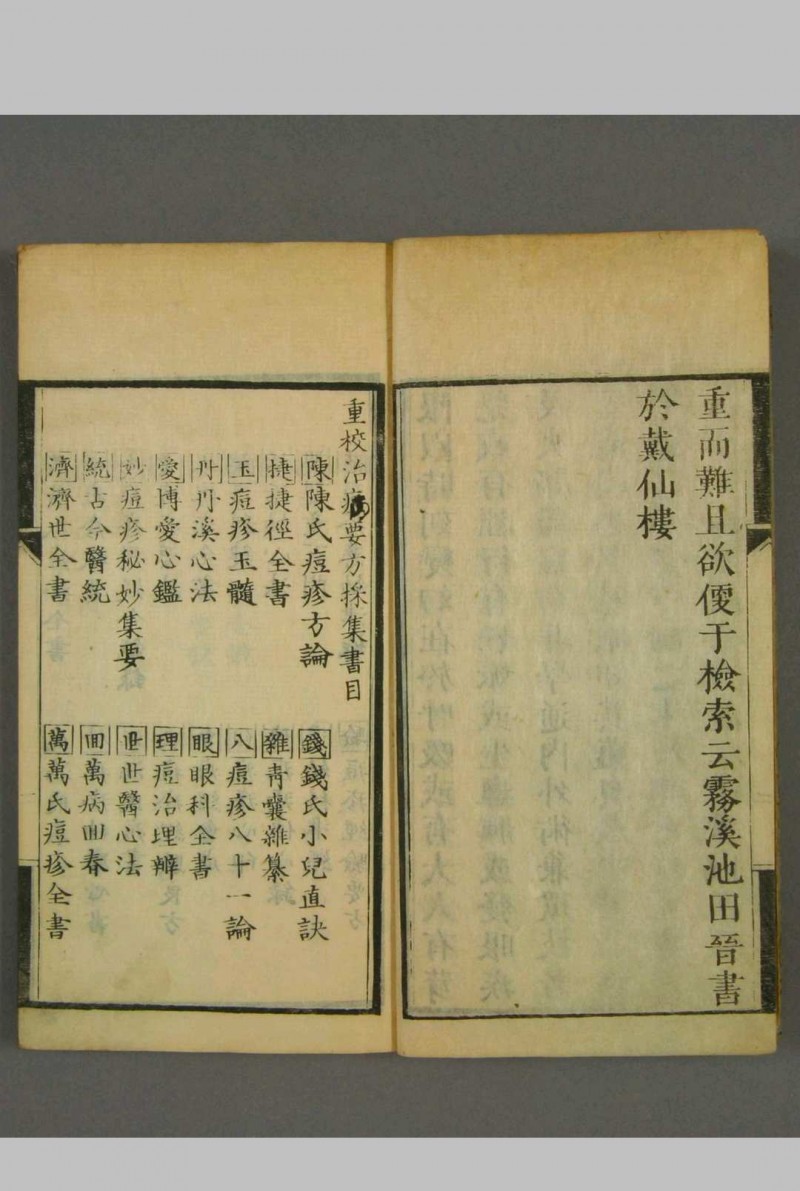 重而難且欲便于檢索云霧溪池田晉書
於戴仙樓
重校治痘要方採集書目
陳陳氏痘疹方論
錢錢氏小兒直訣
捷捷徑全書
雜青囊雜纂
玉痘疹玉髓
八痘疹八十一論
丹丹溪心法
眼眼科全書
愛博愛心鑑
理痘治理辨
妙痘疹秘妙集要
世世醫心法
統古今醫統
回萬病回春
濟濟世全書
萬萬氏痘疹全書